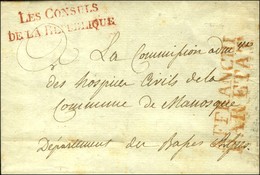 LES CONSULS
DE LA REPUBLIQUE
A La Commission adm.ve
des hospices Civils de la
Commune de Manosque
Département des Basses Alpes